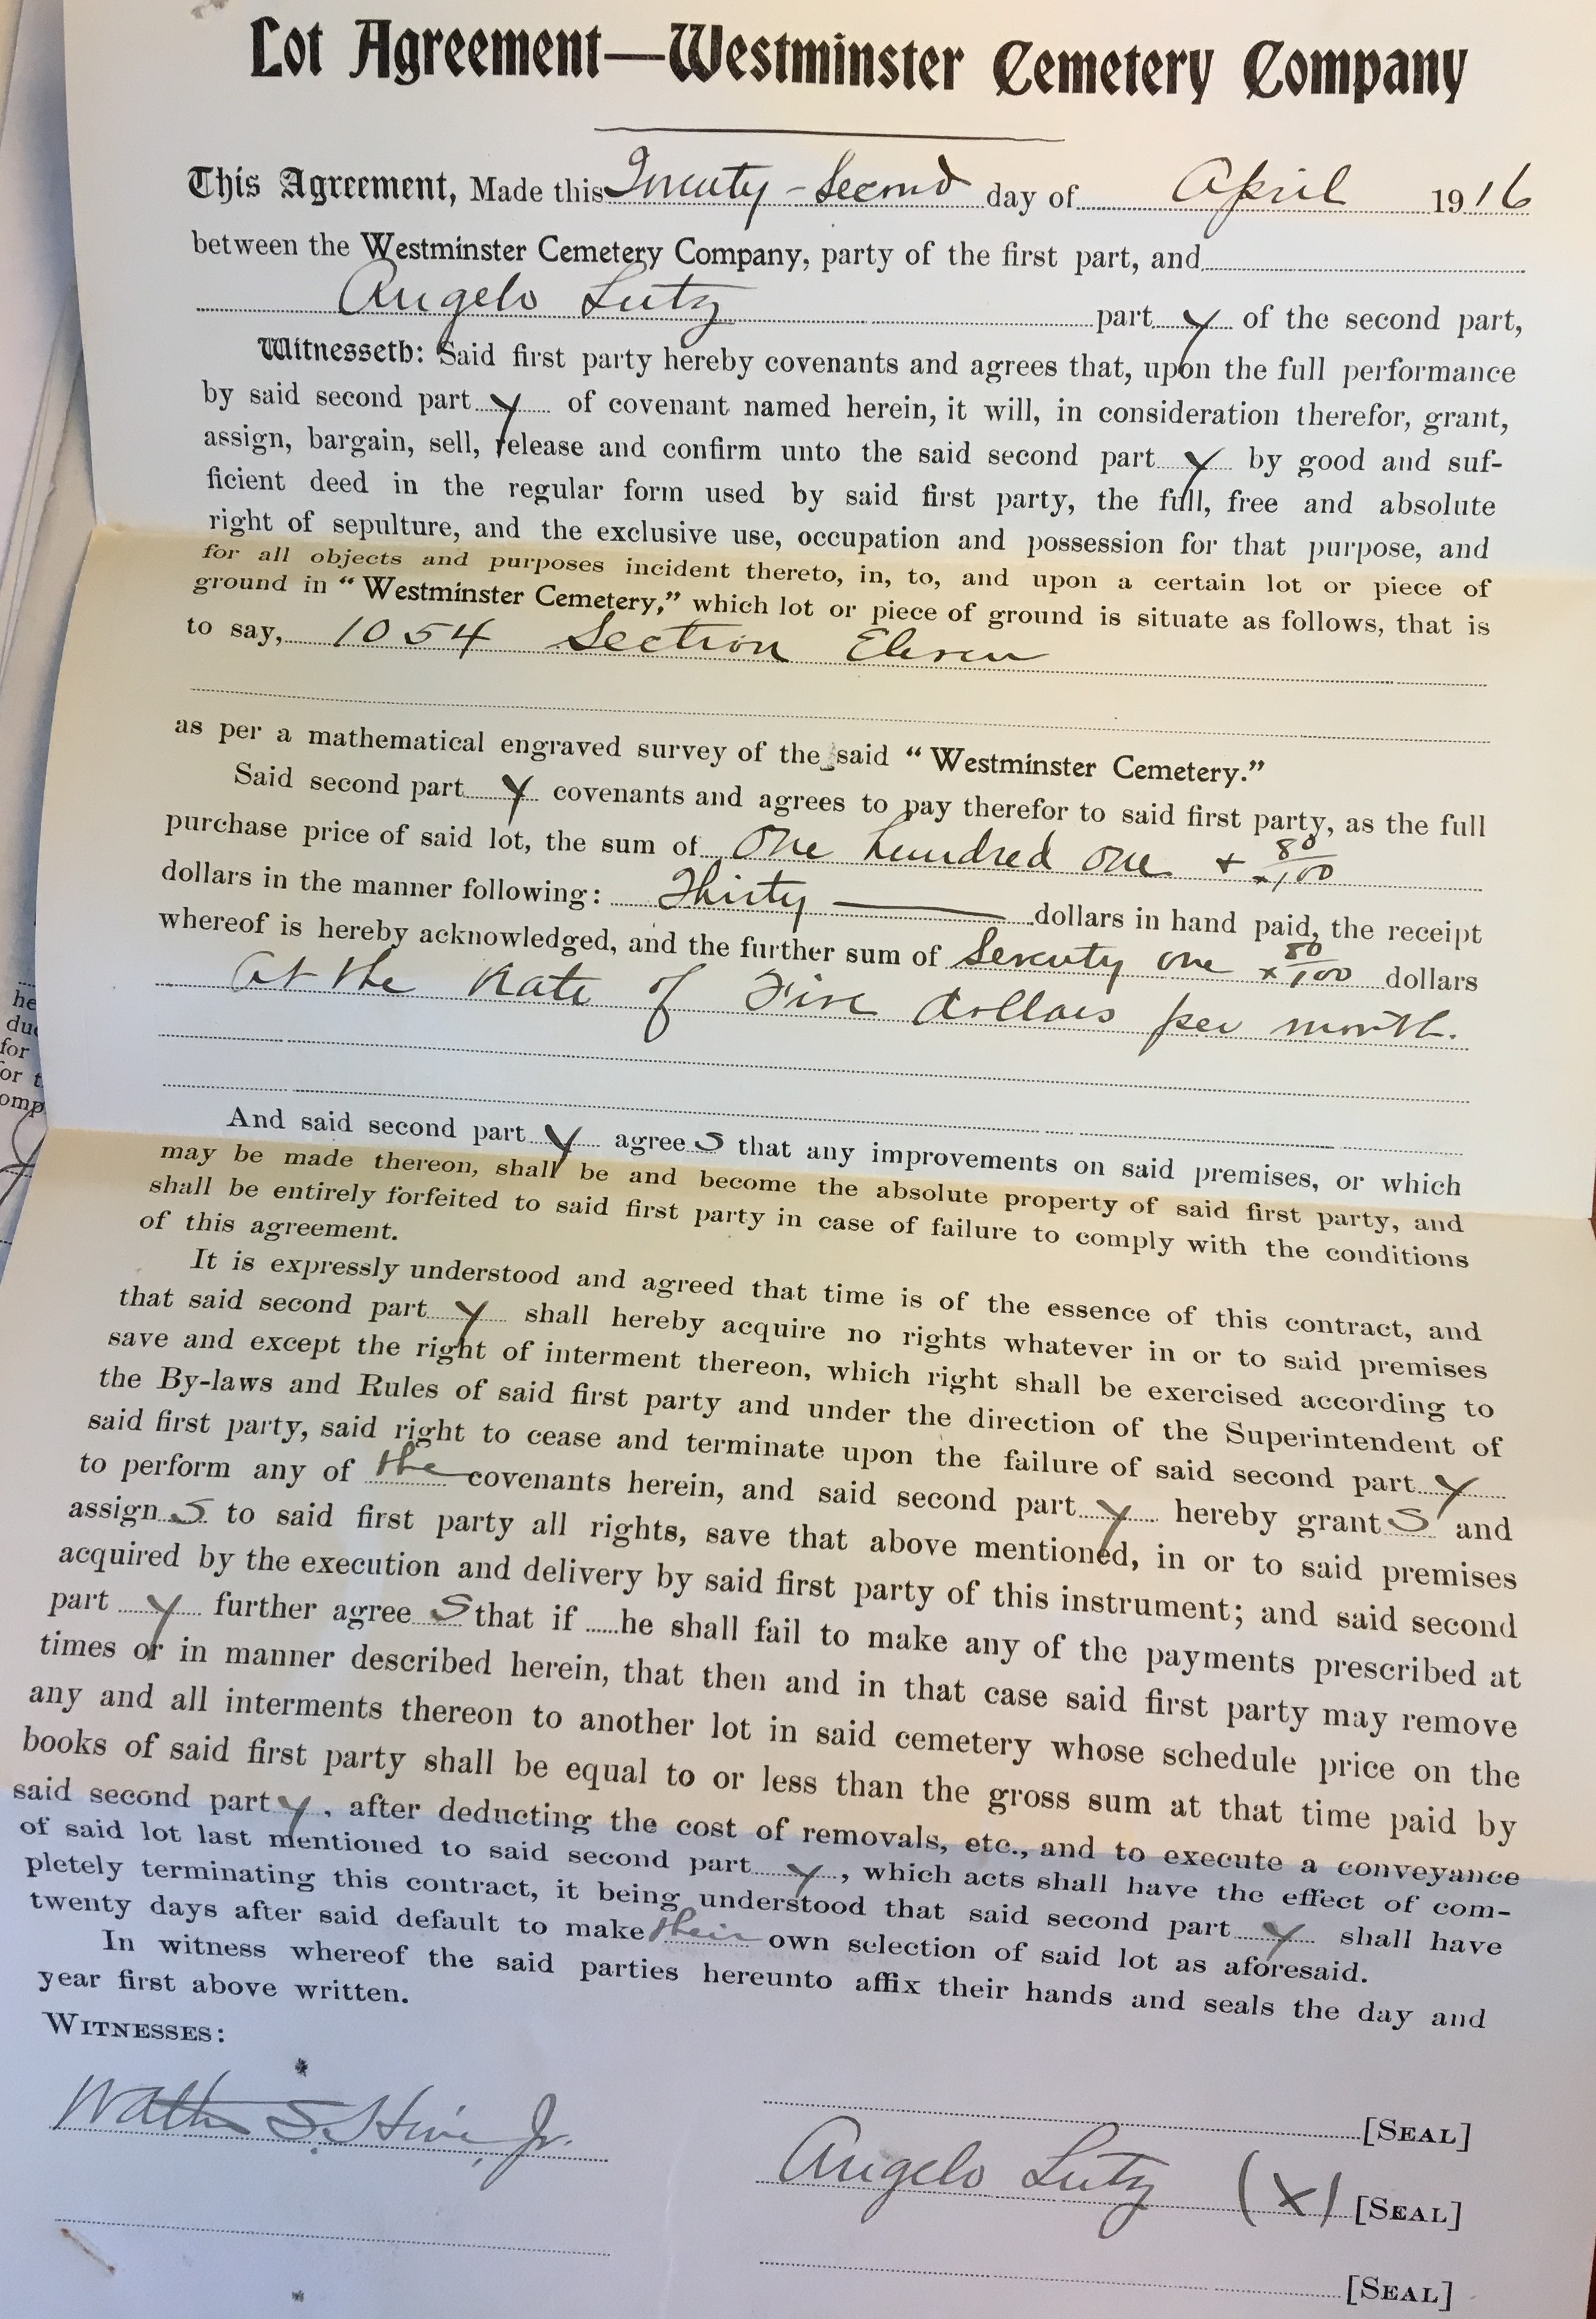 Lot Agreement—Westminster Cemetery Company
This Agreement, Made this Twenty-Second day of April 1916
between the Westminster Cemetery Company, party of the first part, and
Angelo Lutz part y of the second part,
Witnesseth: Said first party hereby covenants and agrees that, upon the full performance
by said second part y of covenant named herein, it will, in consideration therefor, grant,
assign, bargain, sell, release and confirm unto the said second part y by good and suf-
ficient deed in the regular form used by said first party, the full, free and absolute
right of sepulture, and the exclusive use, occupation and possession for that purpose, and
for all objects and purposes incident thereto, in, to, and upon a certain lot or piece of
ground in “Westminster Cemetery,” which lot or piece of ground is situate as follows, that is
to say, 1054 Section Eleven
as per a mathematical engraved survey of the said “Westminster Cemetery.”
Said second part y covenants and agrees to pay therefor to said first party, as the full
purchase price of said lot, the sum of One hundred one + 80/100
dollars in the manner following: Thirty — dollars in hand paid, the receipt
whereof is hereby acknowledged, and the further sum of Seventy one + 80/100 dollars
at the Rate of Five dollars per month.
And said second part y agree s that any improvements on said premises, or which
may be made thereon, shall be and become the absolute property of said first party, and
shall be entirely forfeited to said first party in case of failure to comply with the conditions
of this agreement.
It is expressly understood and agreed that time is of the essence of this contract, and
that said second part y shall hereby acquire no rights whatever in or to said premises
save and except the right of interment thereon, which right shall be exercised according to
the By-laws and Rules of said first party and under the direction of the Superintendent of
said first party, said right to cease and terminate upon the failure of said second part y
to perform any of the covenants herein, and said second part y hereby grant s and
assign s to said first party all rights, save that above mentioned, in or to said premises
acquired by the execution and delivery by said first party of this instrument; and said second
part y further agree s that if he shall fail to make any of the payments prescribed at
times or in manner described herein, that then and in that case said first party may remove
any and all interments thereon to another lot in said cemetery whose schedule price on the
books of said first party shall be equal to or less than the gross sum at that time paid by
said second part y, after deducting the cost of removals, etc., and to execute a conveyance
of said lot last mentioned to said second part y, which acts shall have the effect of com-
pletely terminating this contract, it being understood that said second part y shall have
twenty days after said default to make their own selection of said lot as aforesaid.
In witness whereof the said parties hereunto affix their hands and seals the day and
year first above written.
WITNESSES:
[SEAL]
Walter S. Jr.
Angelo Lutz (X) [SEAL]
[SEAL]
he
for
or t
omp